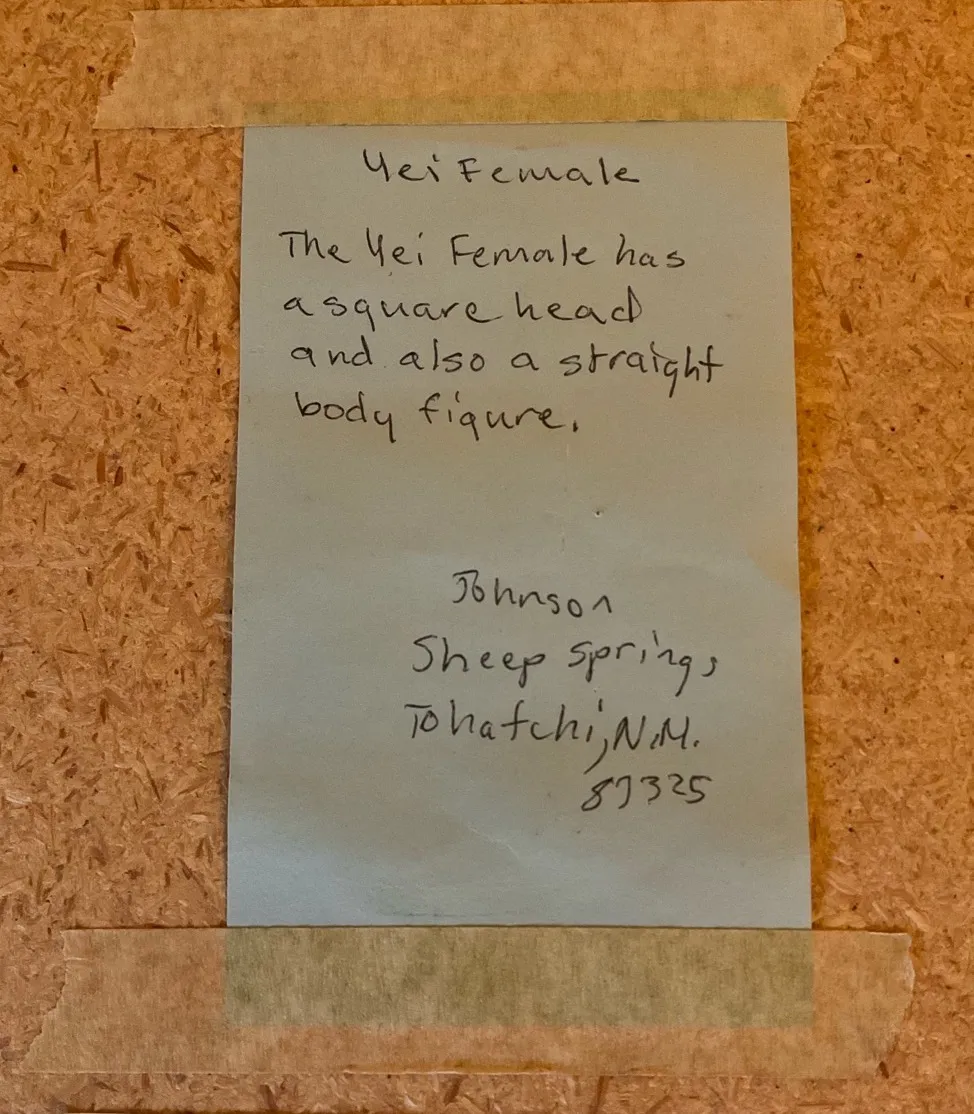 Yei Female
The Yei Female has
a square head
and also a straight
body figure.
Johnson
Sheep springs
Tohatchi, N.M.
87325